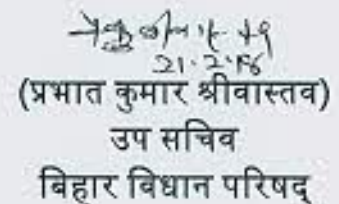 21.2.18
(प्रभात कुमार श्रीवास्तव)
उप सचिव
बिहार विधान परिषद्